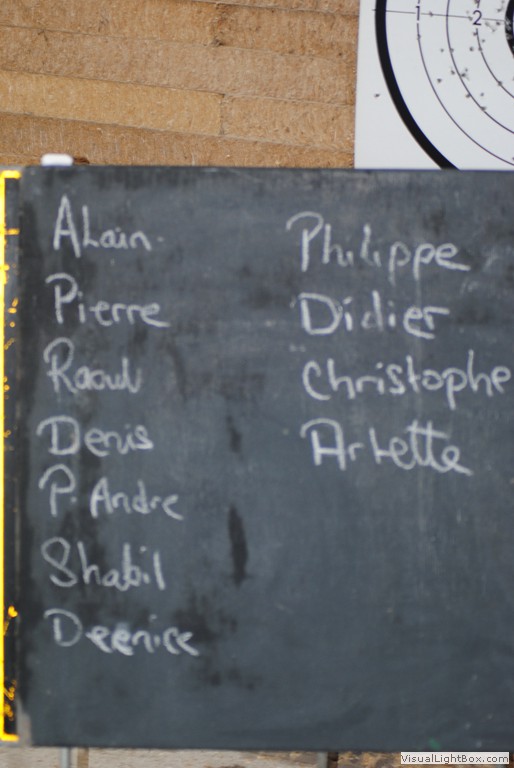 1 2
Alain
Pierre
Raoul
Denis
P. Andre
Shabil
Deenice
Philippe
Didier
Christophe
Arlette
VisualLightBox.com